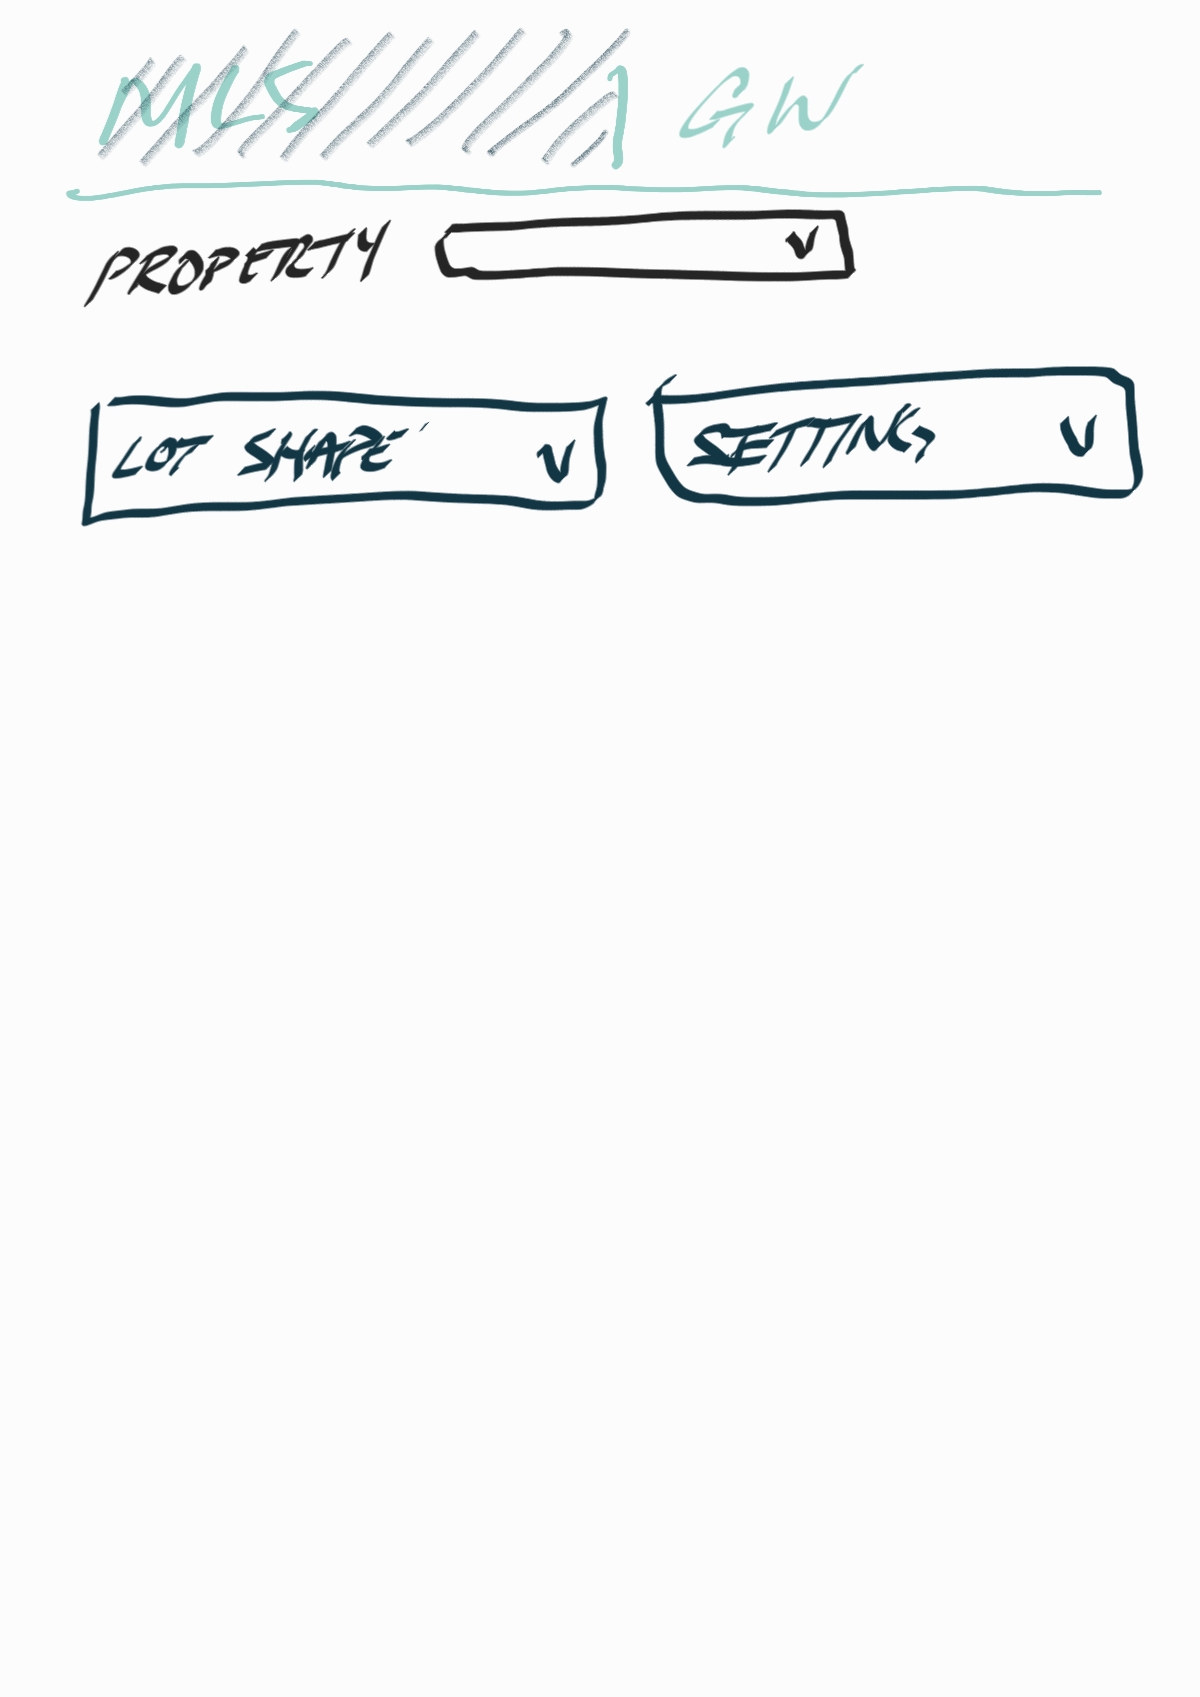 MLS GW
PROPERTY
LOT SHAPE SETTING